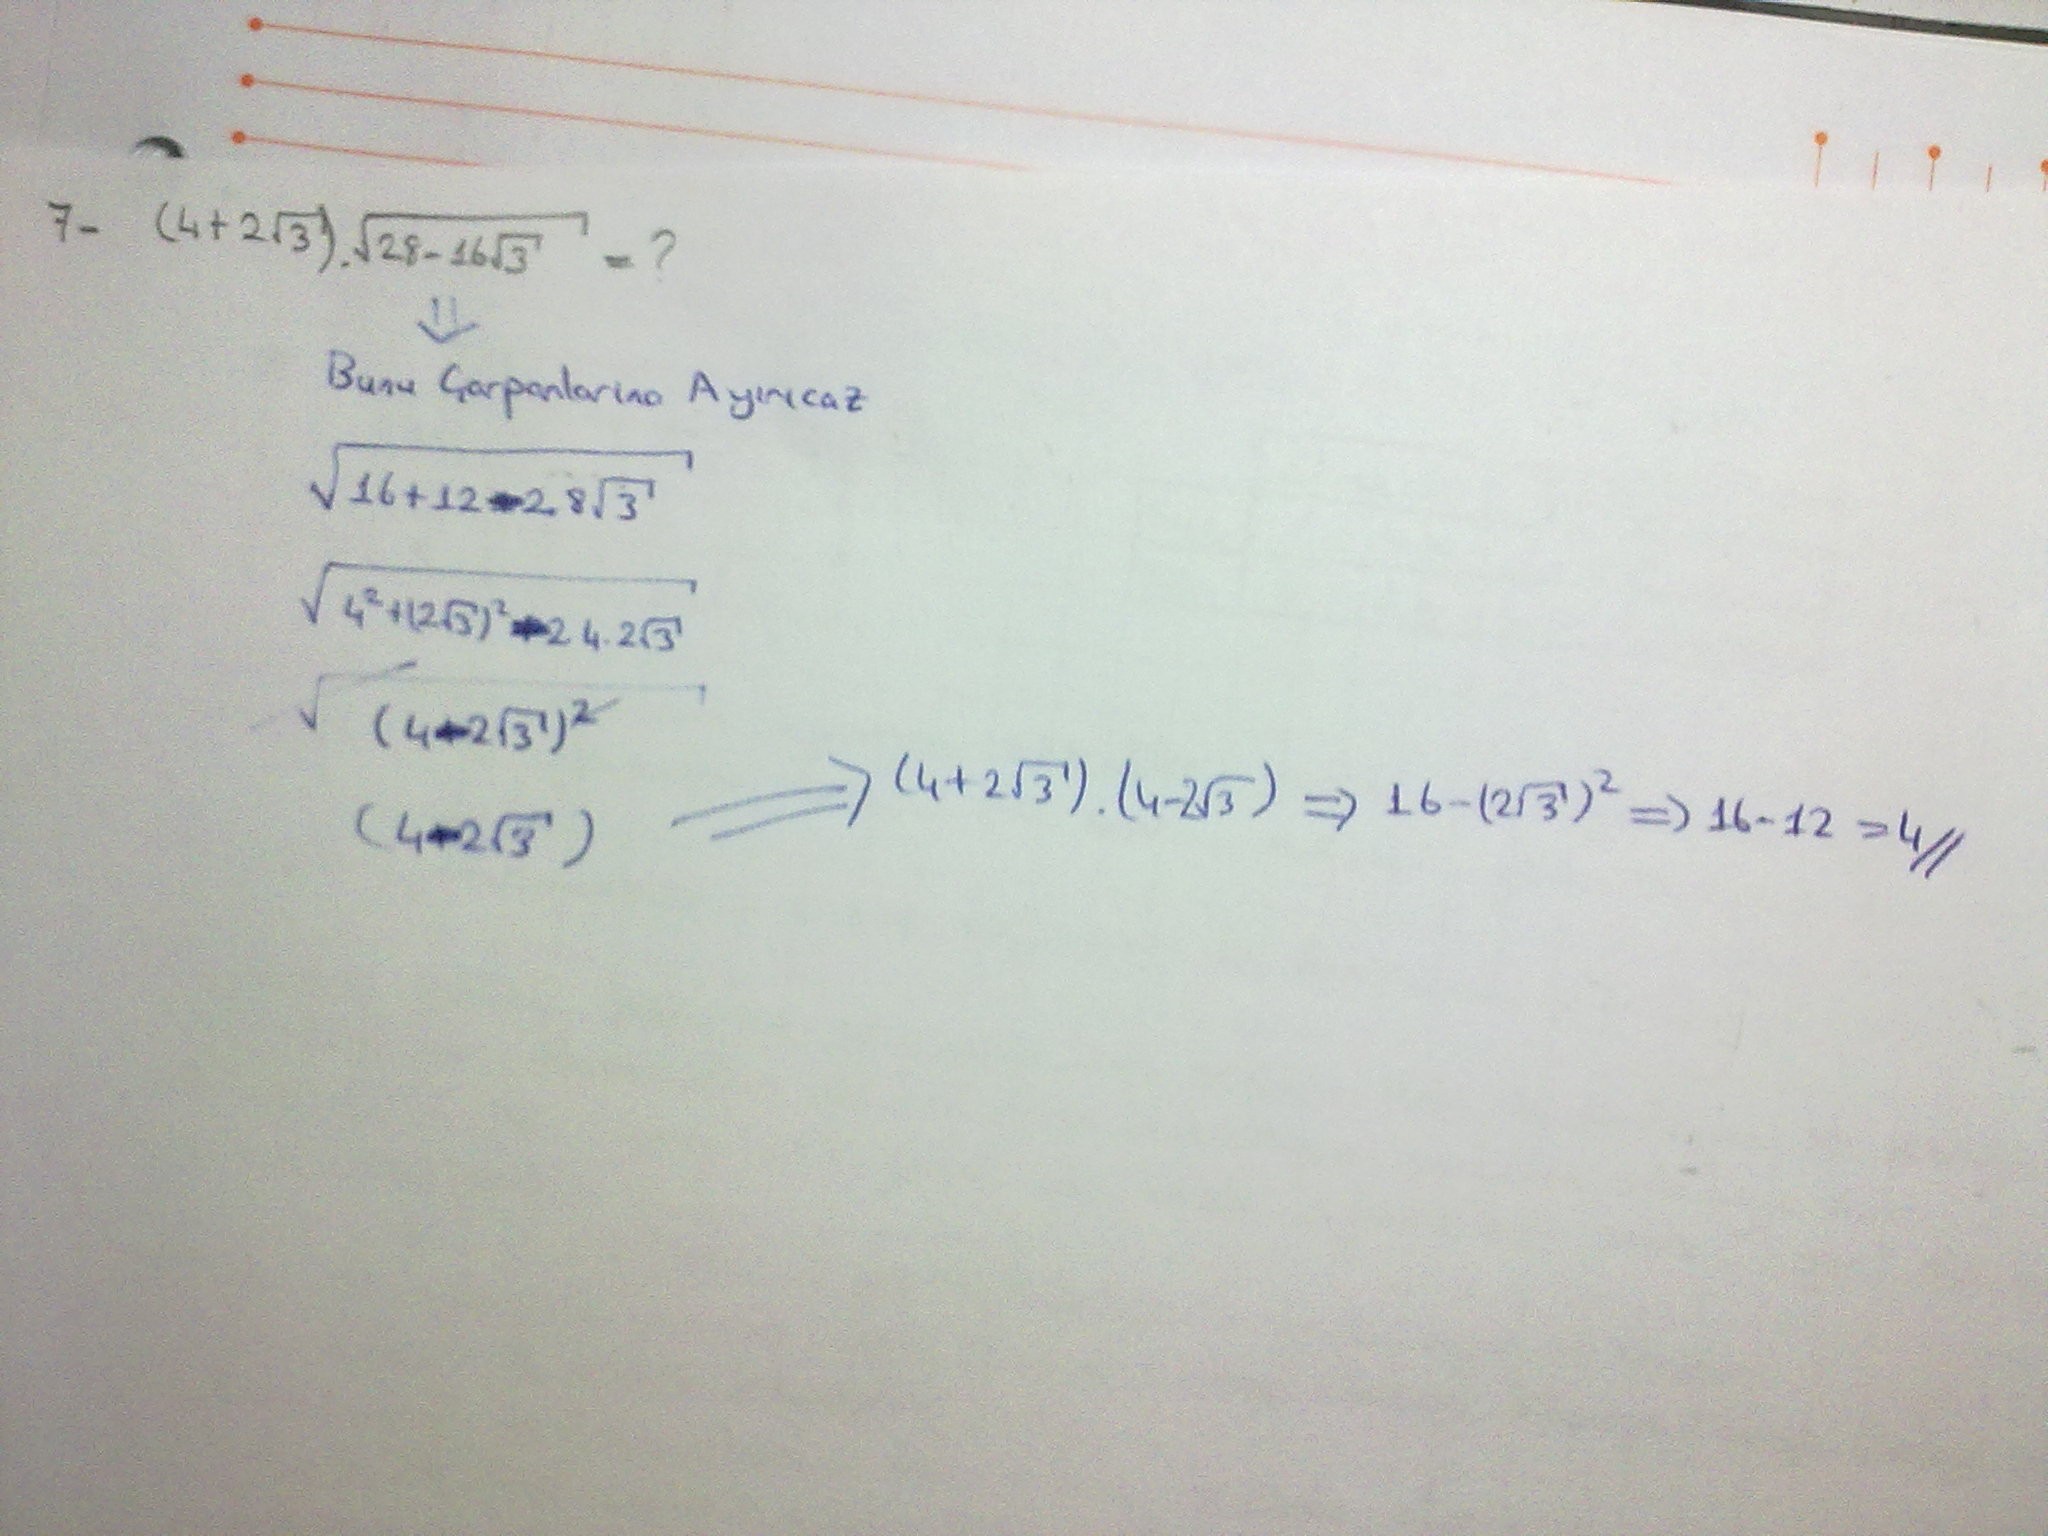 7- (4+2√3).√28-16√3 = ?
⇓
Bunu Çarpanlarına Ayırıcaz
√16+12-2.8√3
√4²+(2√3)²-2 4.2√3
√(4-2√3)²
(4-2√3) ⇒ (4+2√3).(4-2√3) ⇒ 16-(2√3)² ⇒ 16-12 = 4//